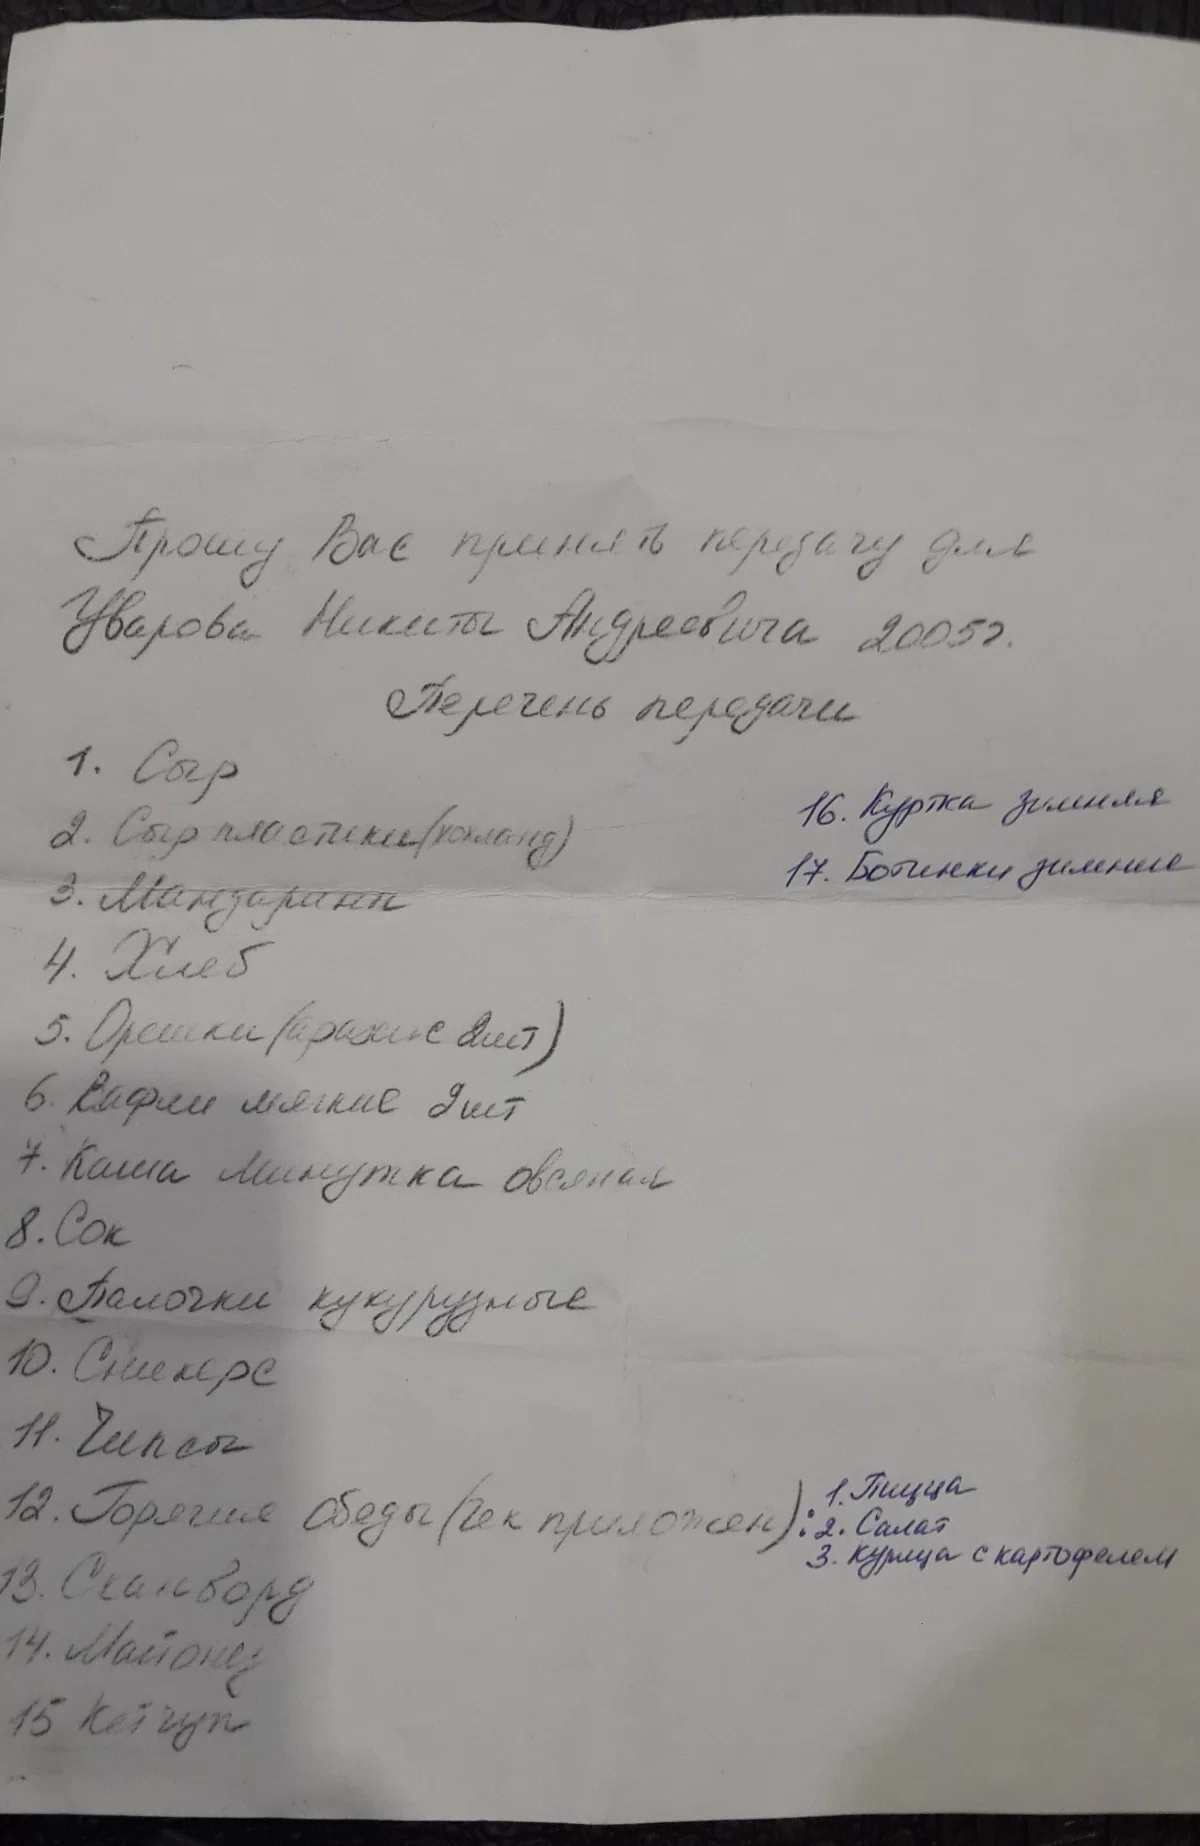 Прошу Вас принять передачу для
Уварова Никиты Андреевича 2005г.
Перечень передачи
1. Сыр
2. Сыр пластики (хохланд)
3. Мандарины
4. Хлеб
5. Орешки (арахис 2шт)
6. Вафли мягкие 2шт
7. Каша минутка овсяная
8. Сок
9. Палочки кукурузные
10. Сникерс
11. Чипсы
12. Горячие обеды (чек приложен) :
1. Пицца
2. Салат
3. Курица с картофелем
13. Сканворд
14. Майонез
15 Кетчуп
16. Куртка зимняя
17. Ботинки зимние